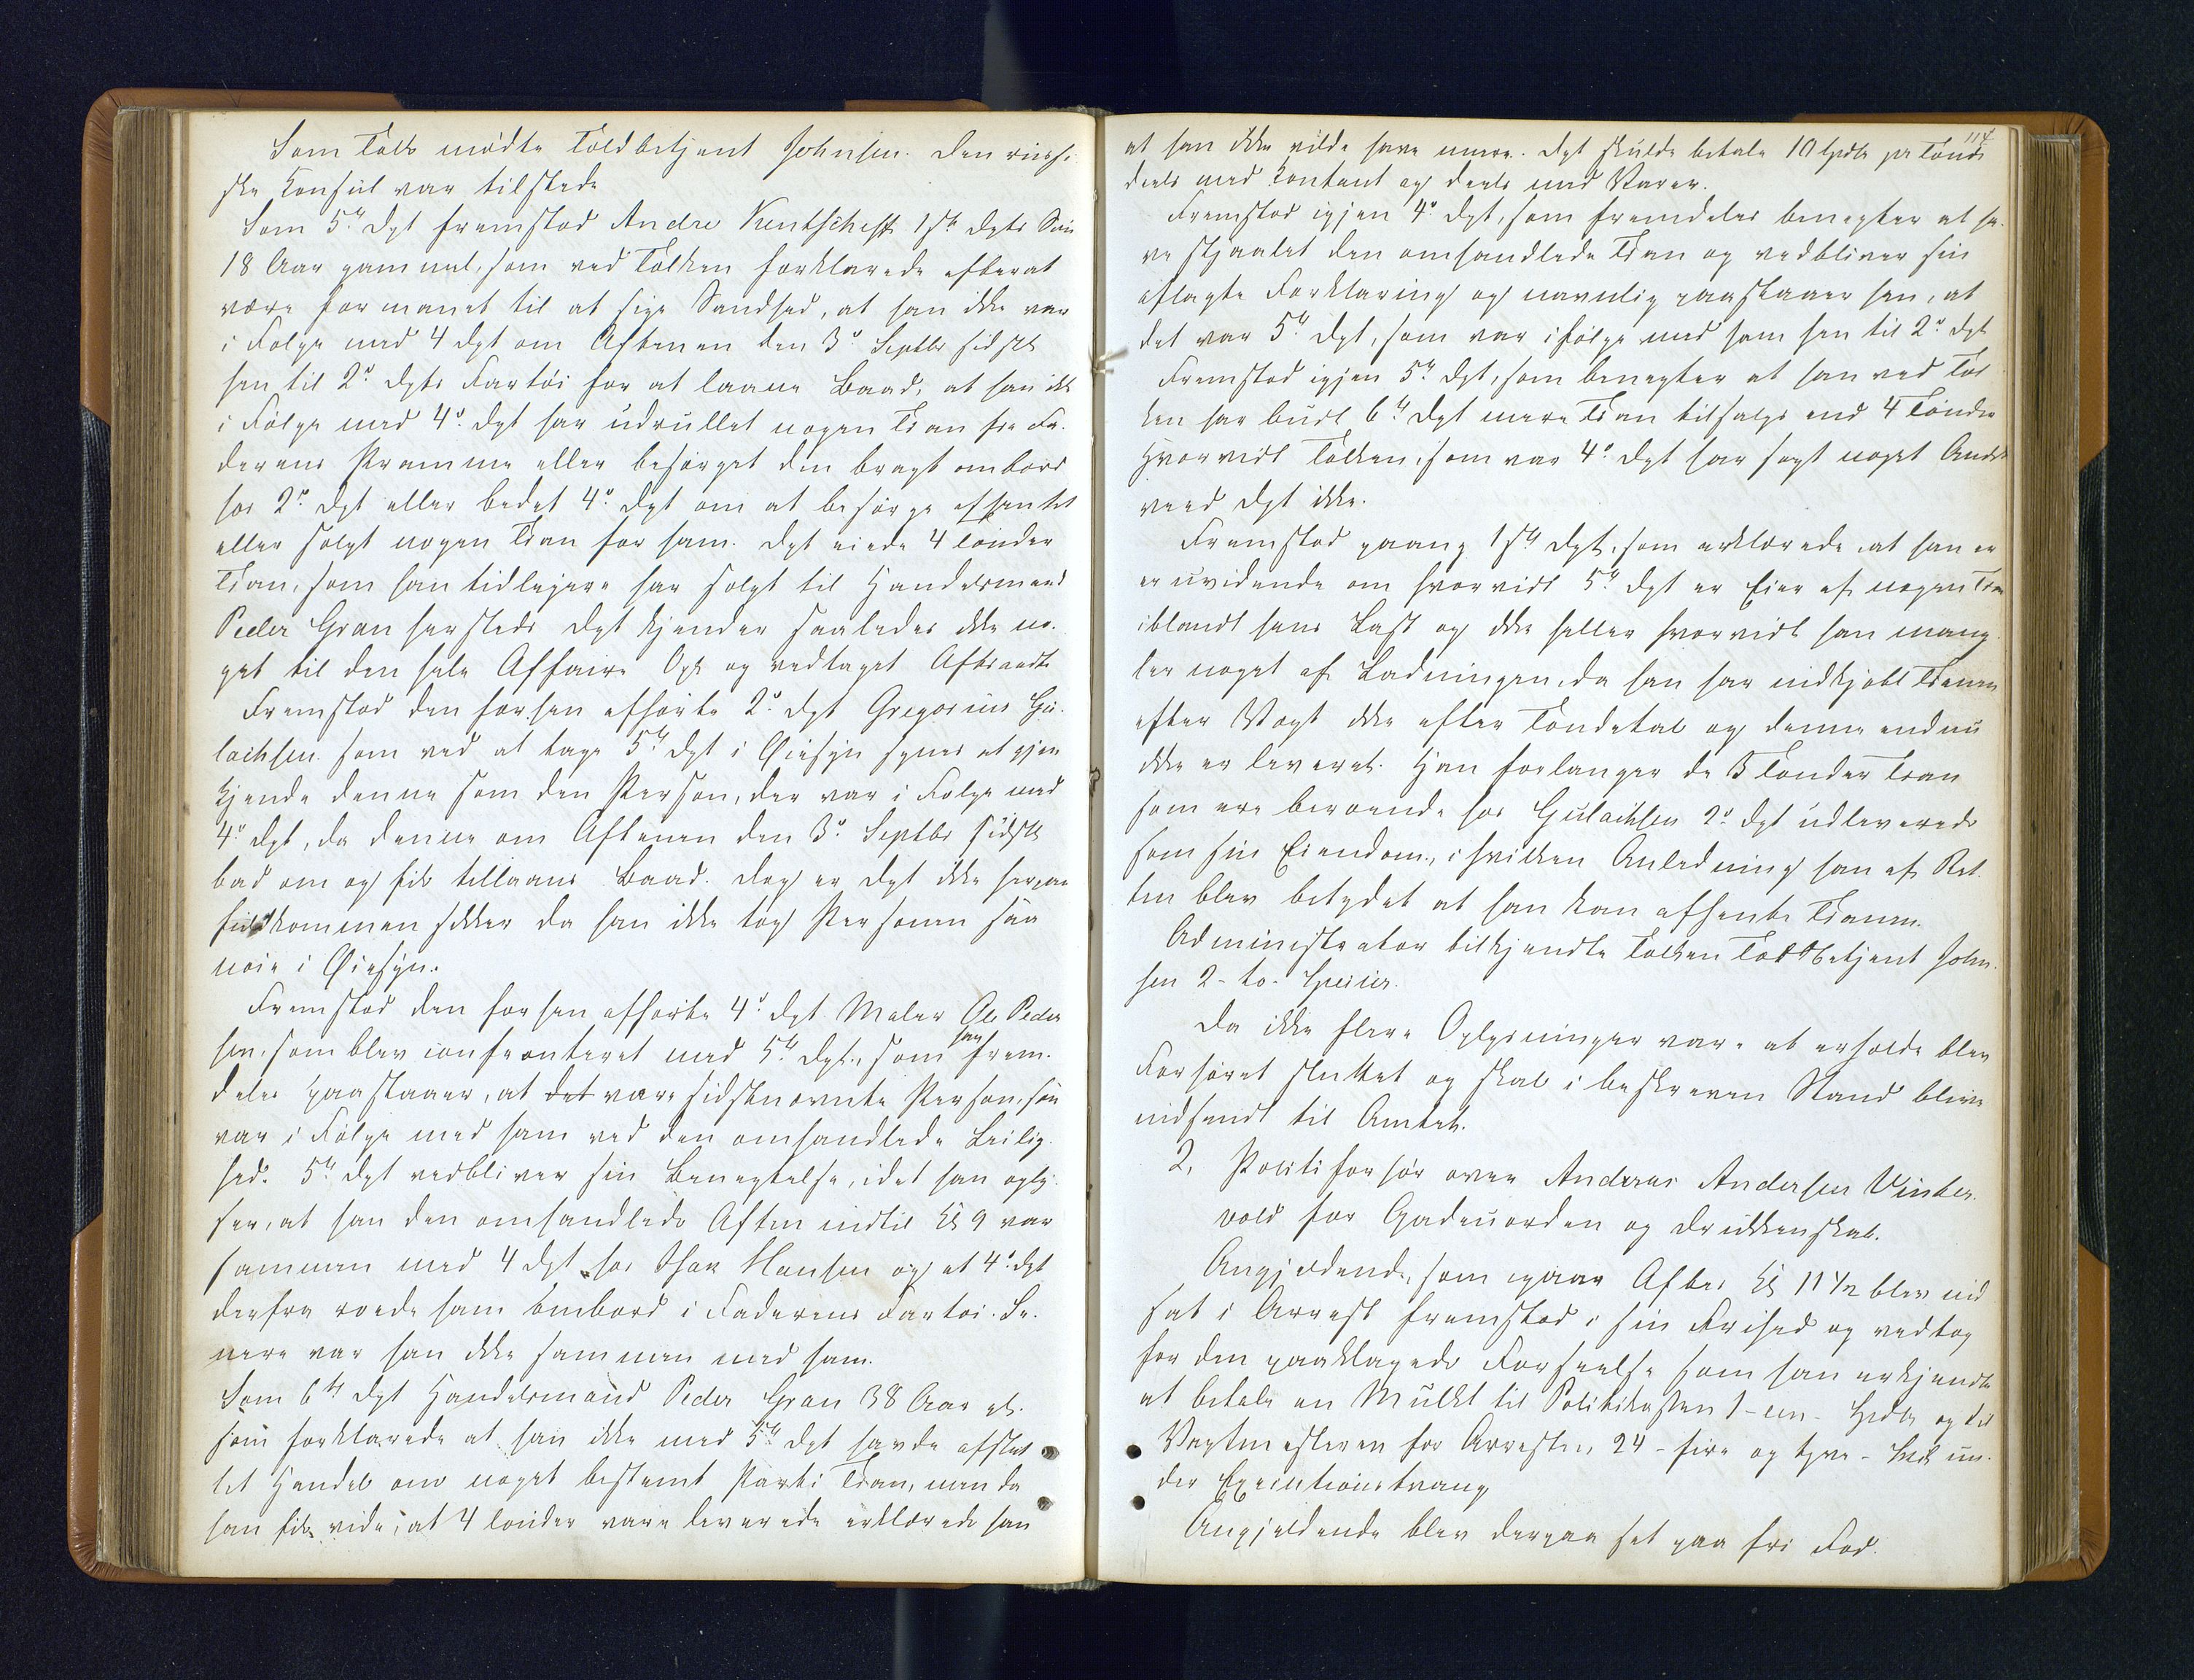 Som Tolk mødte Toldbetjent Johnsen. Den russi-
ske Konsul var tilstede
Som 5te Dpt fremstod Andre Kentscheff 1ste Dpts Søn
18 Aar gammel, som ved Tolken forklarede efterat
være formanet til at sige Sandhed, at han ikke var
i Følge med 4 Dpt om Aftenen den 3die Septbr sidstl
hen til 2d Dpts Fartøi for at laane Baad, at han ikke
i Følge med 4d Dpt har udrullet nogen Tran fra Fa-
derens Pramme eller besørget den bragt ombord
hos 2d Dpt eller bedet 4d Dpt om at besørge afhentet
eller solgt nogen Tran for ham. Dpt eiede 4 Tønder
Tran, som han tidligere har solgt til Handelsmand
Peder Gran hersteds Dpt kjender saaledes ikke no-
get til den hele Affaire Opl og vedtaget Aftraadte
Fremstod den forhen afhørte 2d Dpt Gregorius Gu-
lachsen som ved at tage 5te Dpt i Øiesyn synes at gjen
kjende denne som den Person, der var i Følge med
4d Dpt, da denne om Aftenen den 3d Septbr sidstl
bad om og fik tillaans Baad. Dog er Dpt ikke herpaa
fuldkommen sikker da han ikke tog Personen saa
nøie i Øiesyn.
Fremstod den forhen afhørte 4d Dpt Maler Ole Peder
sen, som blev confronteret med 5te Dpt, som han frem-
deles paastaaer, at det være sidstnævnte Person, som
var i Følge med ham ved den omhandlede Leilig-
hed. 5te Dpt vedbliver sin Benegtelse, idet han oply-
ser, at han den omhandlede Aften indtil Kl 9 var
sammen med 4 Dpt hos Hansen og at 4d Dpt
derfra roede ham ombord i Faderens Fartøi. Se-
nere var han ikke sammen med ham.
Som 6te Dpt Handelsmand Peder Gran 38 Aar gl.
som forklarede at han ikke med 5te Dpt havde afslut
tet Handel om noget bestemt Parti Tran, men da
han fik vide, at 4 Tønder vare leverede erklærede han
114
at han ikke vilde have mere. Dpt skulde betale 10 Spdlr pr Tønde
deels med Kontant og deels med Varer.
Fremstod igjen 4d Dpt, som fremdeles benegter at ha-
ve stjaalet den omhandlede Tran og vedbliver sin
aflagte Forklaring og navnlig paastaaer han, at
det var 5te Dpt, som var i Følge med ham hen til 2d Dpt
Fremstod igjen 5te Dpt, som benegter at han ved Tol
ken har budt 6te Dpt mere Tran tilsalgs end 4 Tønder
Hvorvidt Tolken, som var 4d Dpt har sagt noget Andet
veed Dpt ikke.
Fremstod paany 1ste Dpt, som erklærede, at han er
er uvidende om hvorvidt 5te Dpt er Eier af nogen Tran
iblandt hans Last og ikke heller hvorvidt han mang
ler noget af Ladningen, da han har indkjøbt Tranen
efter Vegt ikke efter Tøndetal og denne endnu
ikke er leveret. Han forlanger de 3 Tønder Tran
som ere beroende hos Gulachsen 2d Dpt udleverede
som sin Eiendom, i hvilken Anledning han af Ret
ten blev betydet at han kan afhente Tranen.
Administrator tilkjendte Tolken Toldbetjent John-
sen 2 - to - Specier.
Da ikke flere Oplysninger vare at erholde blev
Forhøret sluttet og skal i beskreven Stand blive
indsendt til Amtet.
2, Politiforhør over Andreas Andersen Vinter-
vold for Gadeuorden og Drukkenskab.
Angjeldende, som igaar Aftes Kl 11 1/2 blev ind
sat i Arrest fremstod i sin Frihed og vedtog
for den paaklagede Forseelse som han erkjendte
at betale en Mulkt til Politikassen 1 - een - Spdlr og til
Vagtmesteren for Arresten 24 - fire og tyve - Sk un-
der Executionstvang
Angjeldende blev derpaa sat paa fri Fod.